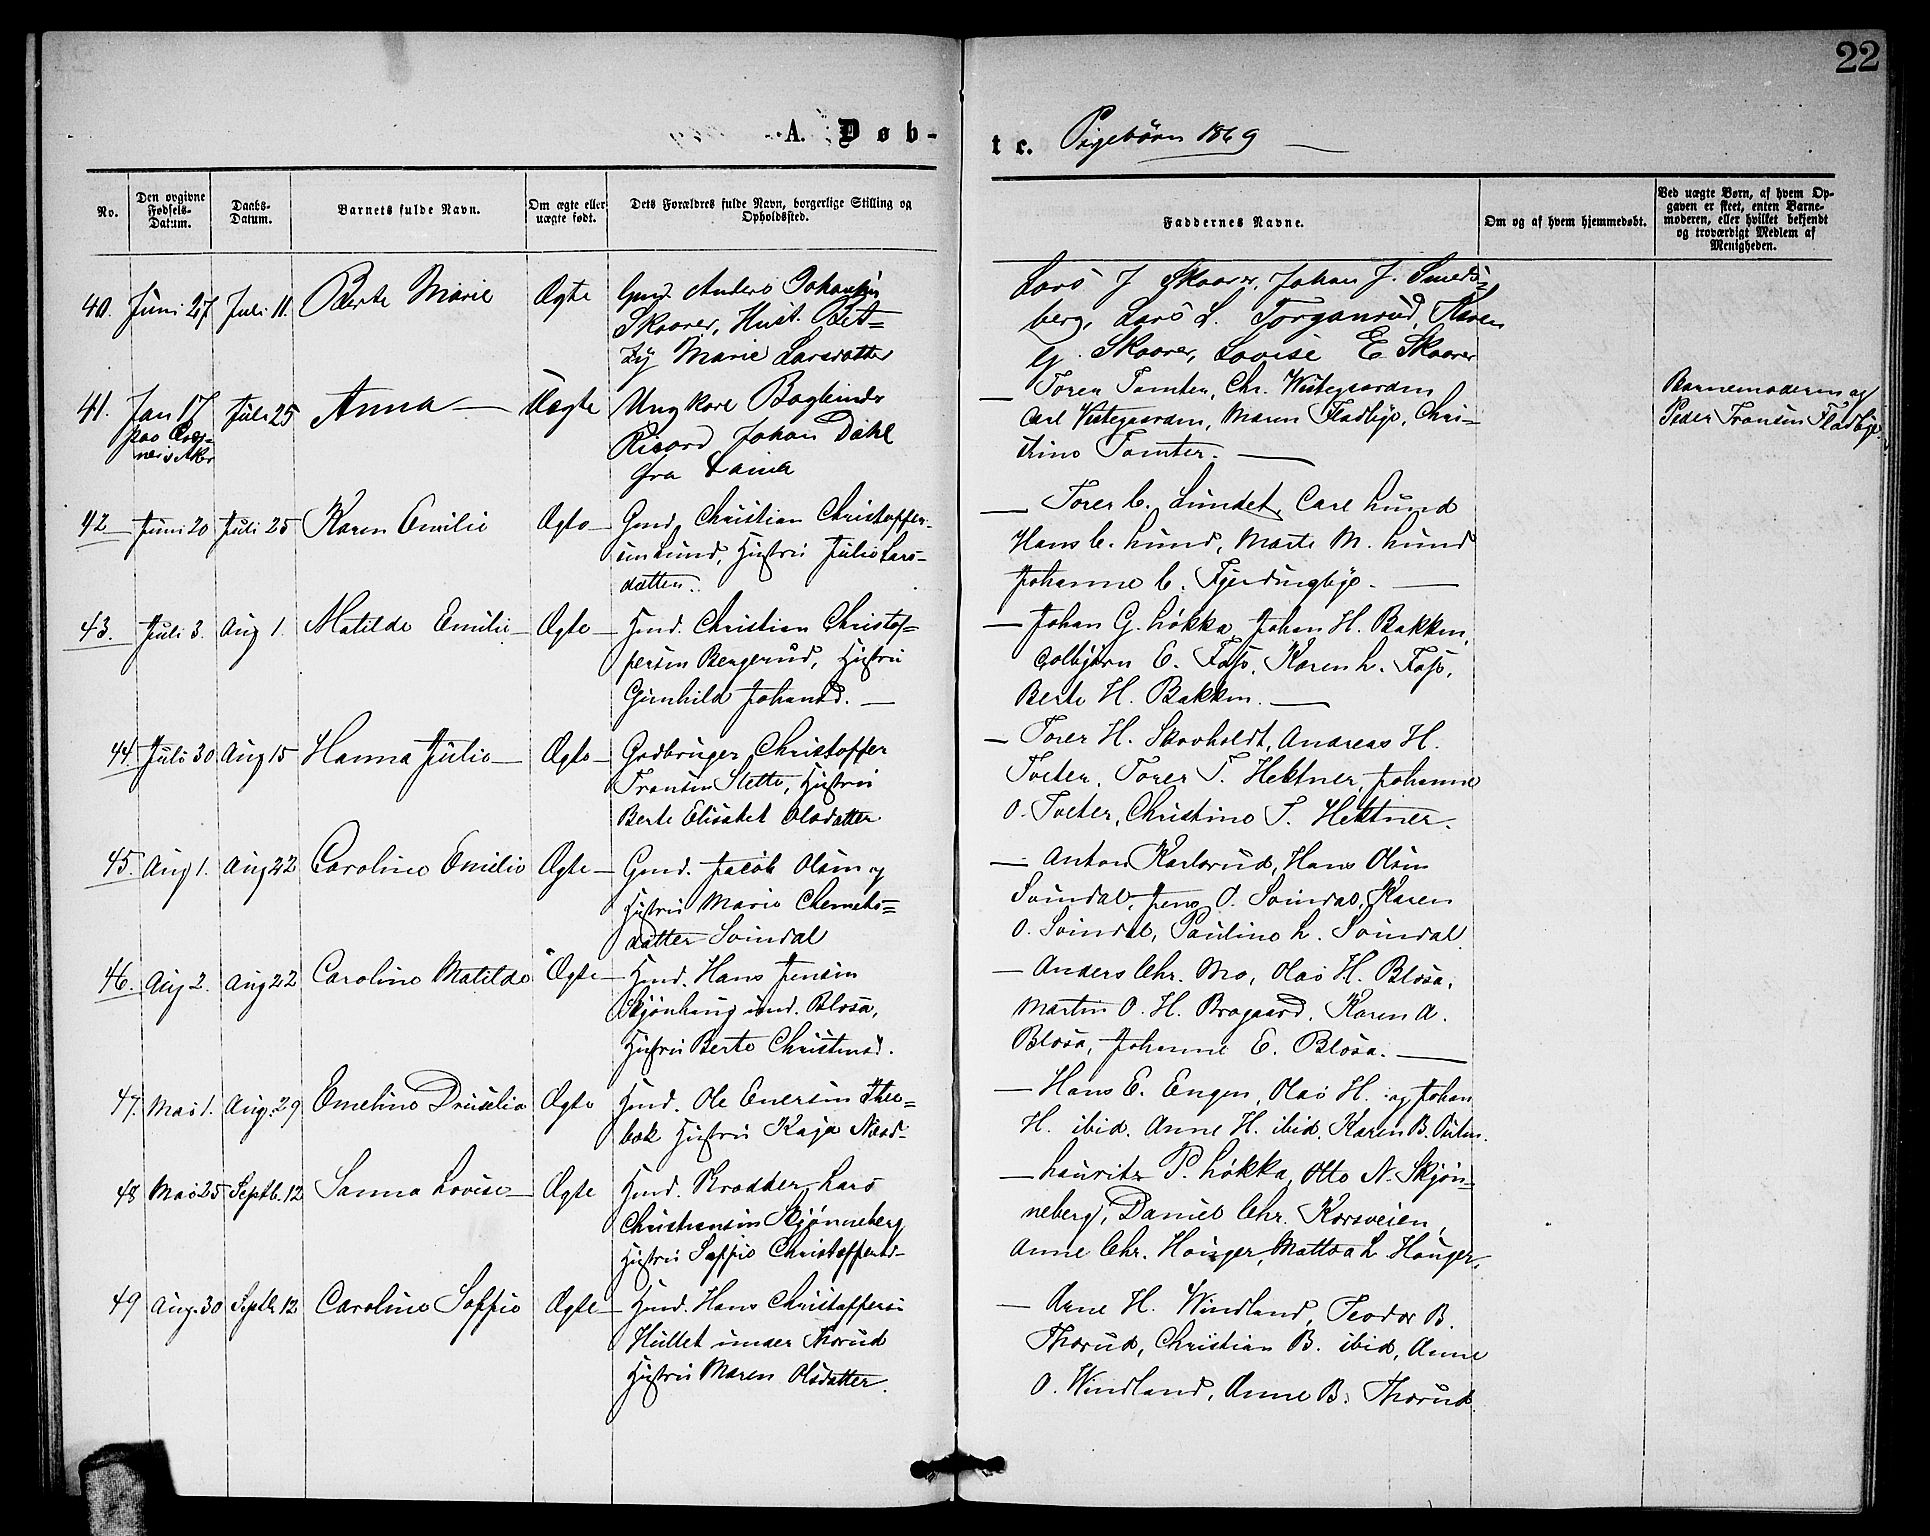 22
A. Døb-
te. Pigebörn 1869
No.
Den opgivne Fødsels-Datum.
Daabs-Datum.
Barnets fulde Navn.
Om ægte eller uægte født.
Dets Forældres fulde Navn, borgerlige Stilling og Opholdssted.
Faddernes Navne.
Om og af hvem hjemmedøbt.
Ved uægte Børn, af hvem Opgaven er skeet, enten Barnemoderen, eller hvilket bekjendt og troværdigt Medlem af Menigheden.
40. Juni 27 Juli 11. Berte Marie Ægte Gmd. Anders Johansen
Skaarer, Hust. Bet=
zy Marie Larsdatter
Lars J Skaarer, Johan J. Smeds=
berg, Lars L. Torganrud, Karen
G. Skaarer, Lovise E. Skaarer
41. Jan 17 Juli 25 Anna — Uægte Ungkarl Bogbinder
Ricard Johan Dahl
fra
— Torer Tomter, Chr. Vestegaarden
Carl Vestegaarden, Maren Fladbye, Chri=
stine Tomter. —
Barnemoderen og
Peder Fransen Fladbye
42 Juni 20 Juli 25 Karen Emilie Ægte — Gmd. Christian Christoffer-
sen Lund, Hustru Julie Lars-
datter.
— Torer C. Lundet, Carl Lund
Hans C. Lund, Marte M. Lund
Johanne C. Fjerdingbye. —
43. Juli 3. Aug 1. Matilde Emilie Ægte — Hmd. Christian Christof=
fersen Bergerud, Hustru
Gunhild Johansd. —
— Johan G. Løkka, Johan H. Bakken,
Golbjørn E. Fosp. Karen L. Fosp.
Berte H. Bakken. —
44. Juli 30 Aug 15 Hanna Julie — Ægte — Gbruger Christoffer
Fransen Slette, Hustru
Berte Elisabet Olsdatter
— Torer H. Skovholdt, Andreas H.
Tveter, Torer T. Hektner, Johanne
O. Tveter, Christine T. Hektner.
45. Aug 1. Aug 22 Caroline Emilie Ægte — Gmd. Jacob Olsen og
Hustru Marie Clemets=
datter Svindal
— Anton Karlsrud, Hans Olsen
Svindal, Jens O. Svindal, Karen
O. Svindal, Pauline L. Svindal.
46. Aug 2. Aug 22 Caroline Matilde Ægte — Hmd. Hans Jensen
Skjønhaug und. Blosa,
Hustru Berte Christensd.
— Anders Chr. Mo, Olas H. Blosa,
Martin O. H. Bragaard, Karen A.
Blosa, Johanne E. Blosa. —
47. Mai 1. Aug. 29 Emeline Drusilia Ægte Hmd. Ole Enersen Thee=
bak Hustru Kaja
— Hans E. Engen, Olas H. og Johan
H. ibid. Anne H. ibid. Karen B.
48 Mai 25 Septb. 12 Sanna Lovise — Ægte Hmd. Lars
Christiansen Skjønneberg
Hustru Soffie Christoffersd-
— Lauritz P. Løkka, Otto N. Skjøn=
neberg, Daniel Chr. Korsveien,
Anne Chr. Houger, Mattea L. Houger.
49 Aug. 30 Septb. 12 Caroline Soffie Ægte — Hmd. Hans Christoffersen
Hullet under Thorud
Hustru Maren Olsdatter.
— Arne H. Windland, Teodor B.
Thorud, Christian B. ibid, Anne
O. Windland, Anne B. Thorud